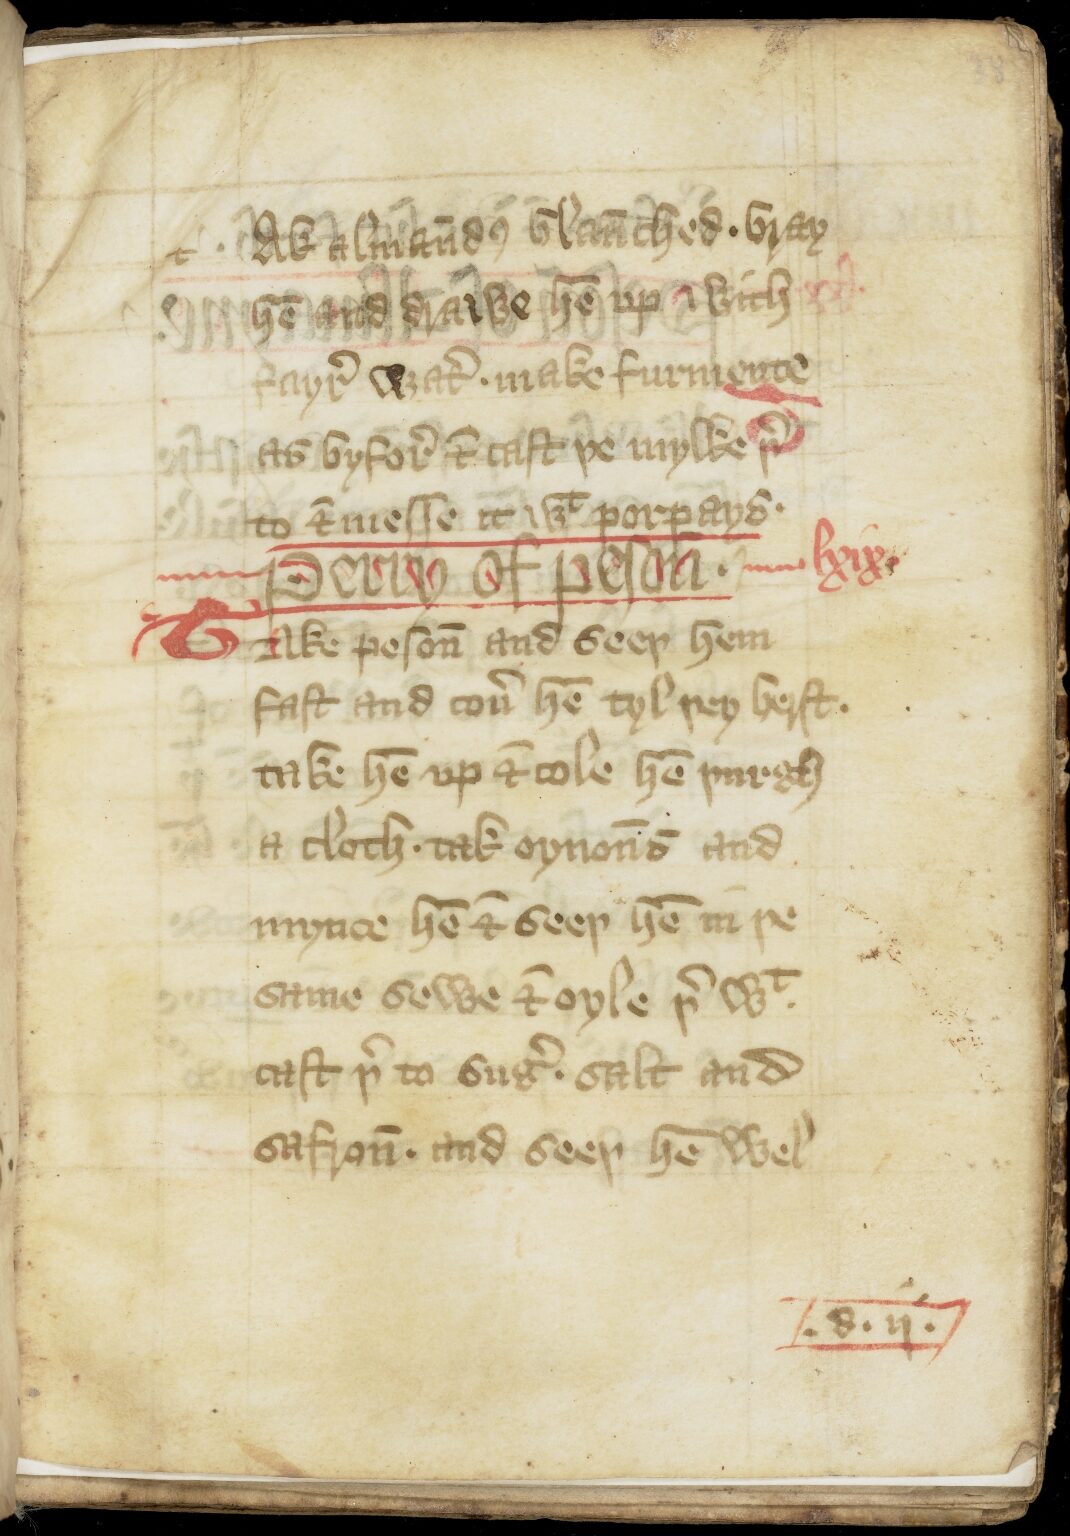 38
t. Ak almandꝰ blan̄ched · bray
hē and drawe hē vp with
fayr̉ wat̉ · make furmente
as byfor̉ & cast þe mylke þ̉
to & messe it wᵗ porpays ·
Perry of peson̄ · lxix.
Take peson̄ and seeþ hem
fast and coủ hē tyl þey berst ·
take hē vp & cole hē þurgh
a cloth · tak oynon̄s and
mynce hē & seeþ hē in þe
same sewe & oyle þ̉ wᵗ.
cast þ̉ to sug̉ · salt and
safron̄ · and seeþ hē wel
. d . ij .